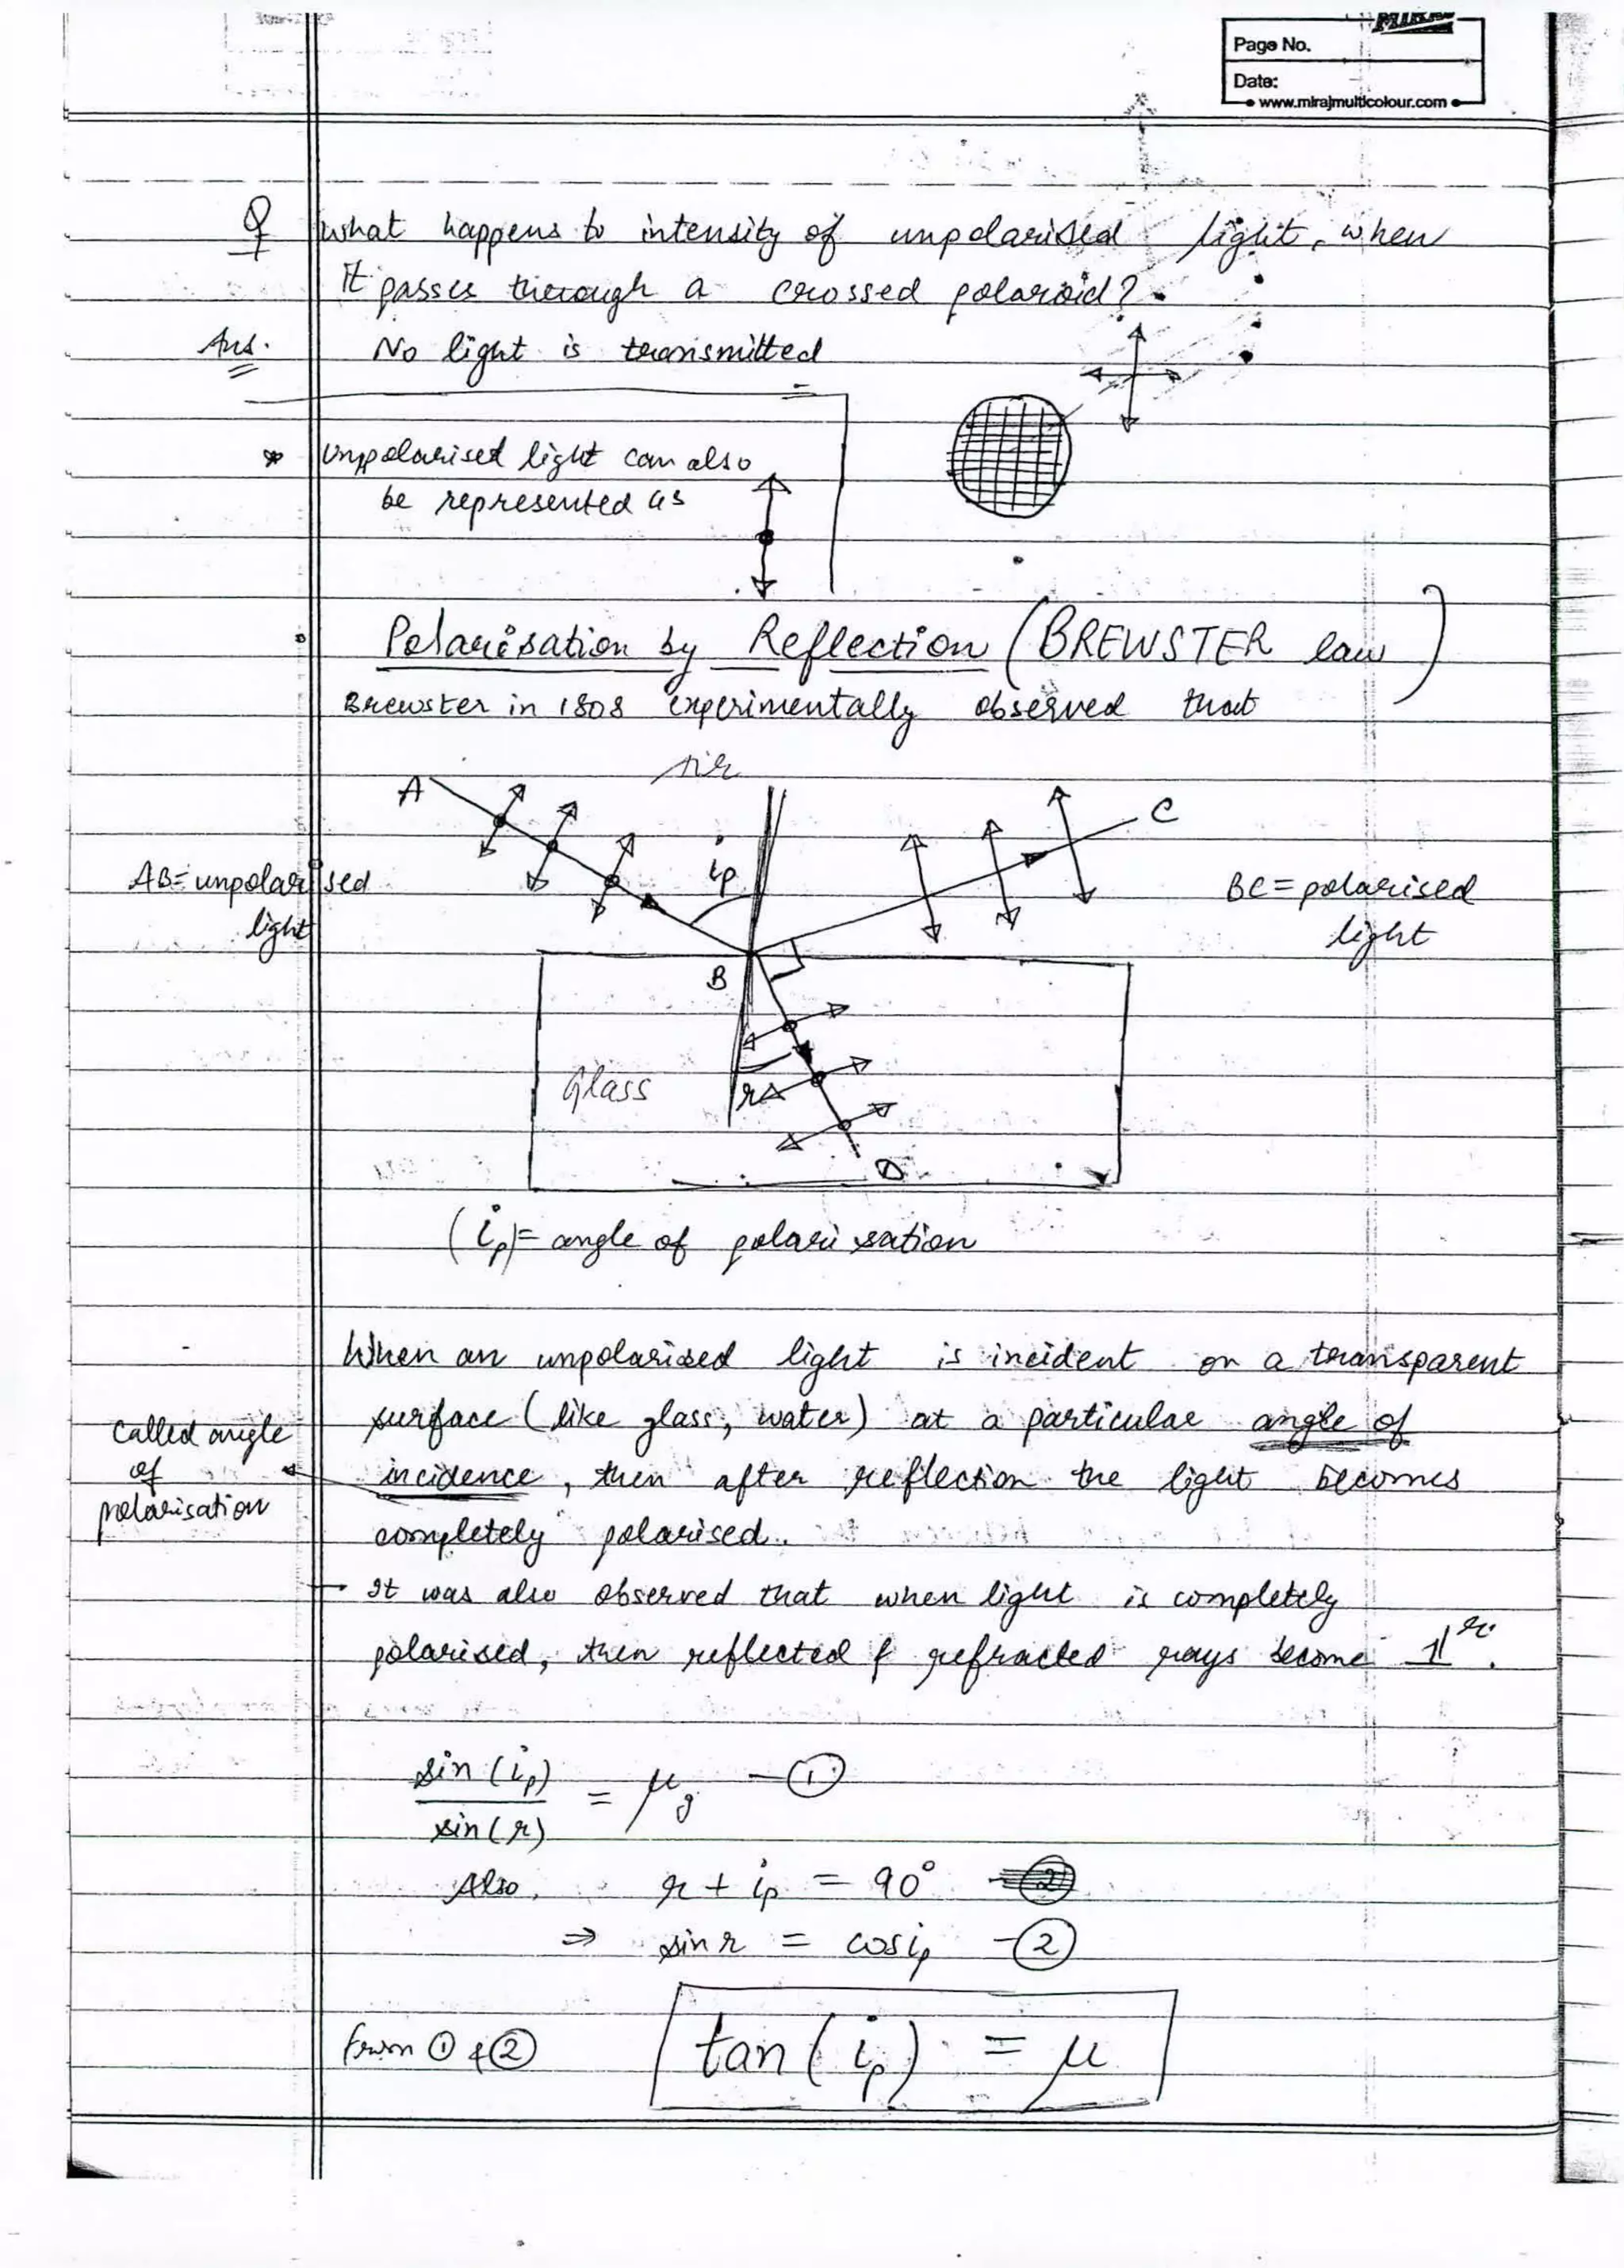 MIRAJ
Page No.
Date:
www.mirajmulticolour.com
Q what happens to intensity of unpolarised light, when
it passes through a crossed polaroid?
Ans. No light is transmitted
* Unpolarised light can also
be represented as
Polarisation by Reflection (BREWSTER law)
Brewster in 1808 experimentally observed that
Air
A
C
ip
AB = unpolarised
light
BC = polarised
light
B
Glass
r
D
(ip) = angle of polarisation
When an unpolarised light is incident on a transparent
surface (like glass, water) at a particular angle of
called angle
of
polarisation
incidence, then after reflection the light becomes
completely polarised.
→ It was also observed that when light is completely
polarised, then reflected & refracted rays become ⊥r.
sin (ip) / sin (r) = μg - ①
Also, r + ip = 90°
⇒ sin r = cos ip - ②
from ① & ② tan (ip) = μ